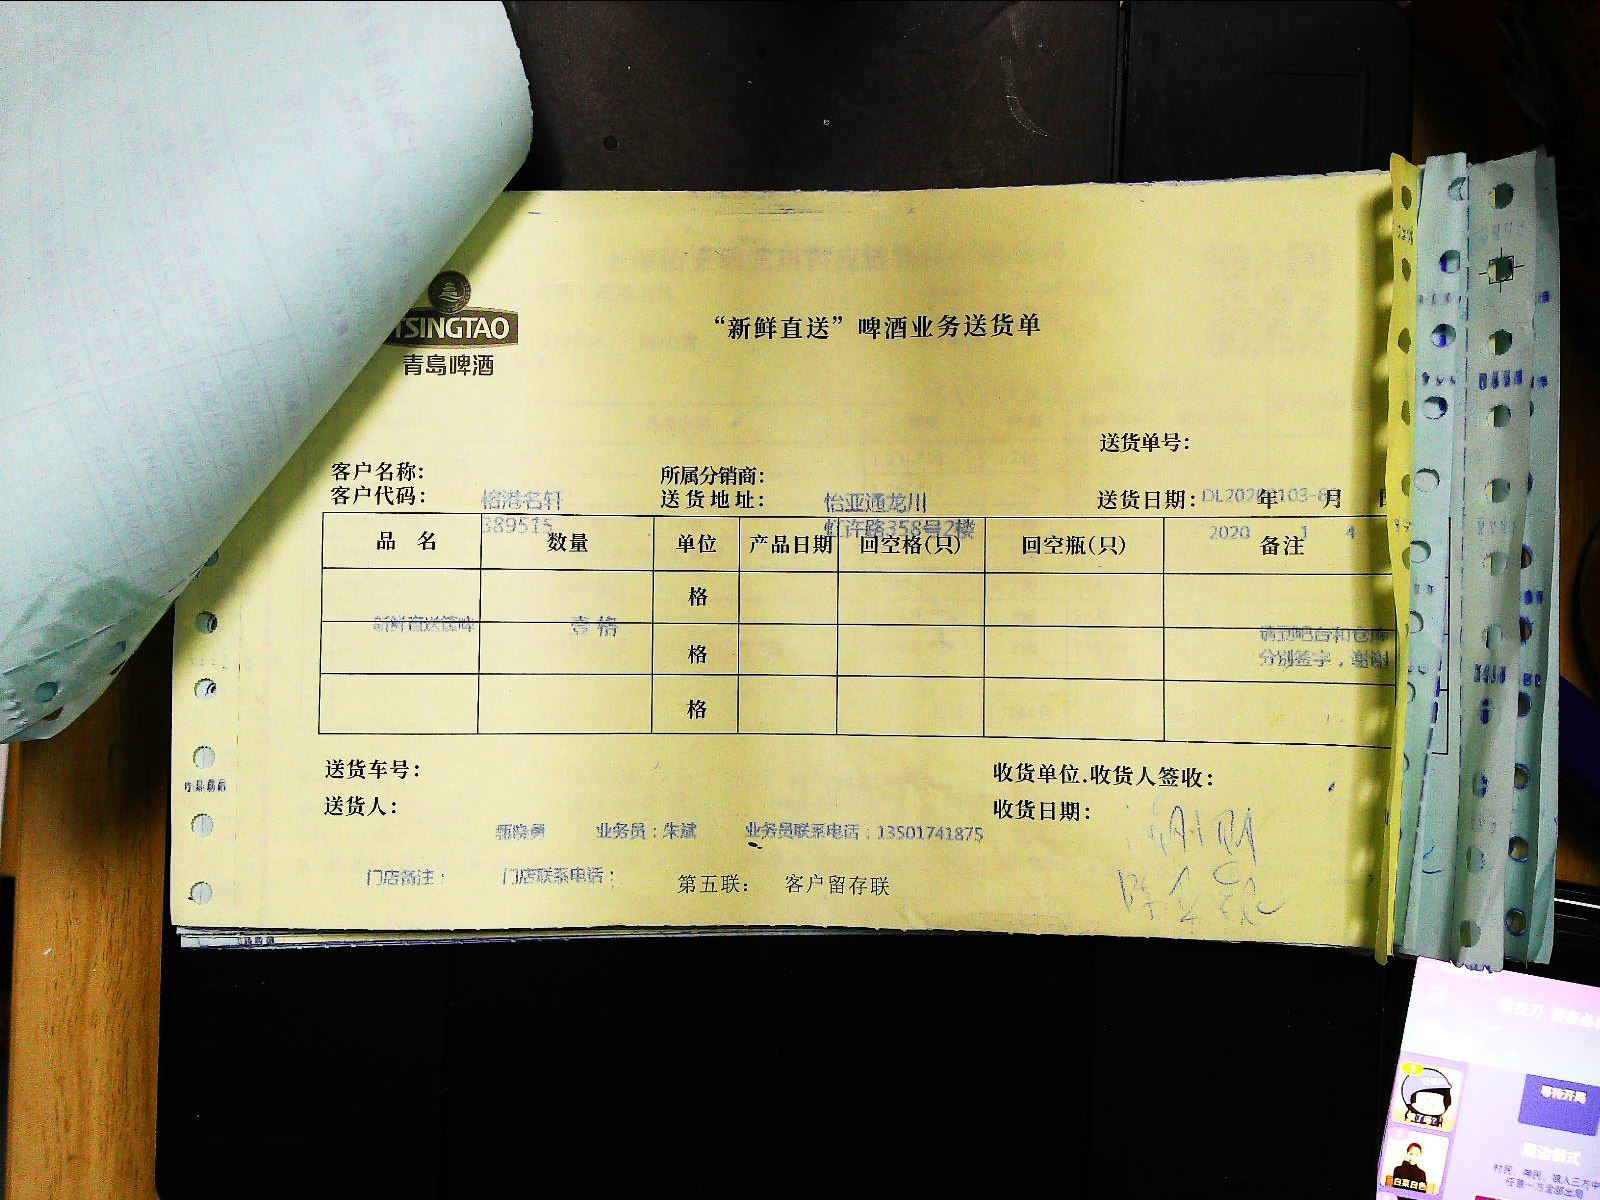 TSINGTAO
青岛啤酒
“新鲜直送”啤酒业务送货单
送货单号：
客户名称： 所属分销商：
客户代码： 榕港名轩 送货地址： 怡亚通龙川 送货日期： 年 月
389515 虹许路358号2楼 2020 1 4
品 名 数量 单位 产品日期 回空格(只) 回空瓶(只) 备注
格
新鲜直送 壹格
格 分别签字，谢谢
格
送货车号： 收货单位.收货人签收：
送货人： 收货日期：
业务员：朱斌 业务员联系电话：13501741875
门店备注： 门店联系电话： 第五联： 客户留存联
等待开局
白菜白色